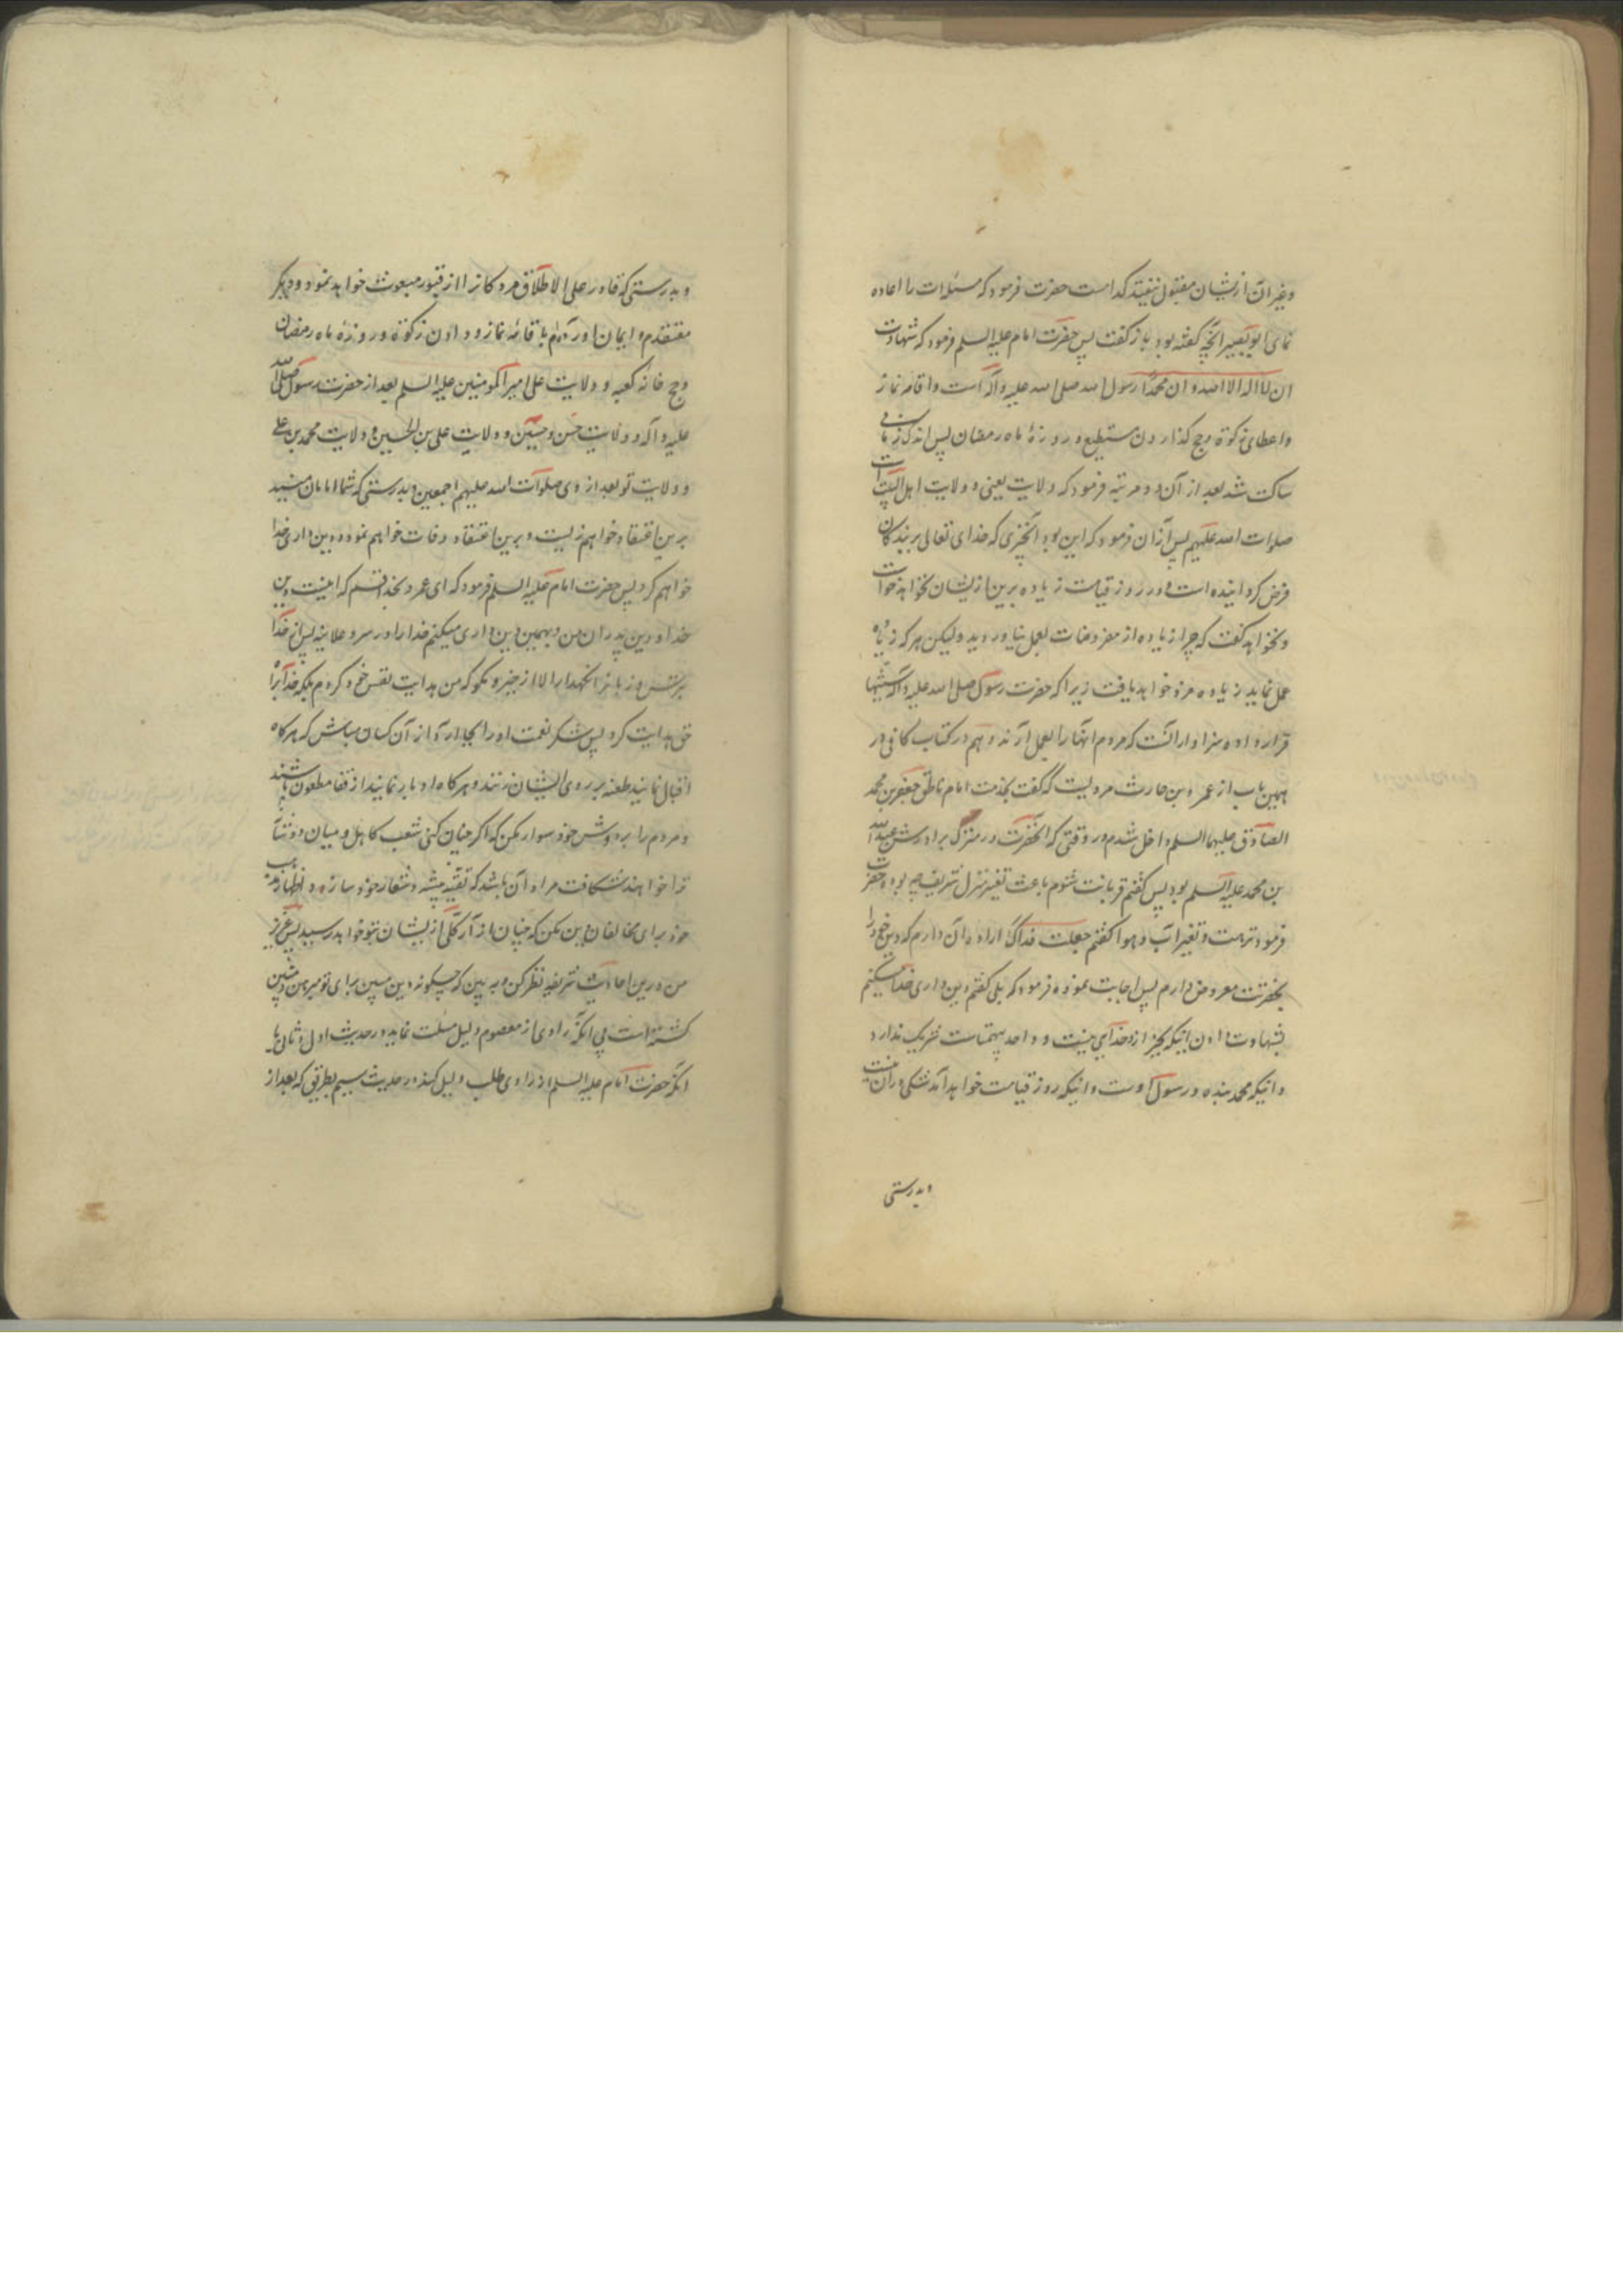 وغیر آن ازیشان مقبول نیفتد کدامست حضرت فرمود که مسئله‌ات را اعاده
نمای ابو بصیر آنچه گفته بود باز گفت پس حضرت امام علیه السلم فرمود که شهادت
ان لا اله الا الله و ان محمدا رسول الله صلی الله علیه و آله است و اقامه نماز
و اعطای زکوة و حج گذاردن مستطیع و روزهٔ ماه رمضان پس اندک زمانی
ساکت شد بعد از آن دو مرتبه فرمود که ولایت یعنی و ولایت اهل البیت است
صلوات الله علیهم پس از آن فرمود که این بود آنچیزی که خدای تعالی بر بندگان
فرض کردانیده است و در روز قیامت زیاده برین ازیشان نخواهد خواست
و نخواهد گفت که چرا زیاده از مفروضات بعمل نیاوردید ولیکن هر که زیاده
عمل نماید زیاده مزد خواهد یافت زیرا که حضرت رسول صلی الله علیه و آله سنتها
قرار داده سزاوار آنست که مردم آنها را بعمل آرند و هم در کتاب کافی در
همین باب از عمرو بن حارث مرویست که گفت بخدمت امام ناطق جعفر بن محمد
الصادق علیهما السلم داخل شدم در وقتی که آنحضرت در منزل برادرش عبد الله
بن محمد علیه السلم بود پس گفتم قربانت شوم باعث تغییر منزل شریف چه بود حضرت
فرمود نزهت و تغییر آب و هوا گفتم جعلت فداک اراده آن دارم که دین خود را
بحضرتت معروض دارم پس اجابت نموده فرمود که بلی گفتم دین داری خدا میکنم
بشهادت دادن اینکه بجز از و خدائی نیست و واحد بیهمتاست شریک ندارد
و اینکه محمد بنده و رسول اوست و اینکه روز قیامت خواهد آمد شکی در آن نیست
و بدرستی
و بدرستی که قادر علی الاطلاق مردکانرا از قبور مبعوث خواهد نمود و دیکر
معتقدم و ایمان آورده‌ام باقامهٔ نماز و دادن زکوة و روزهٔ ماه رمضان
و حج خانه کعبه و ولایت علی امیر المومنین علیه السلم بعد از حضرت رسول صلی الله
علیه و آله و ولایت حسن و حسین و ولایت علی بن الحسین و ولایت محمد بن علی
و ولایت تو بعد از وی صلوات الله علیهم اجمعین و بدرستی که شما امامان منید
برین اعتقاد خواهم زیست و برین اعتقاد وفات خواهم نمود و دین داری خدا
خواهم کرد پس حضرت امام علیه السلم فرمود که ای عمرو بخدا قسم که اینست دین
خدا و دین پدران من و بهمین دین داری میکنم خدا را در سر و علانیه پس از خدا
بترس و زبانرا نکهدار الا از خیر و مگو که من هدایت نفس خود کردم بلکه خدا ترا
حق هدایت کرد پس شکر نعمت او را بجا آر و از آن کسان مباش که هرکاه
اقبال نمایند طعنه بر روی ایشان زنند و هرکاه ادبار نمایند از قفا مطعون باشند
و مردم را بر دوش خود سوار مکن که اگر چنان کنی شعب کاهل و میان دوشت
ترا خواهند شکافت مراد آن باشد که تقیه پیشه و شعار خود ساز و اظهار مذهب
خود برای مخالفان دین مکن که چنان از آرکلی ازیشان بتو خواهد رسید پس ای عزیز
من درین احادیث شریفه نظر کن و به بین که چگونه دین مبین برای تو مبرهن و مبین
کشته است بی آنکه راوی از معصوم دلیل مسئلت نماید در حدیث اول و ثانی یا
آنکه حضرت امام علیه السلم از راوی طلب دلیل کند در حدیث سیم بطریق که بعد از